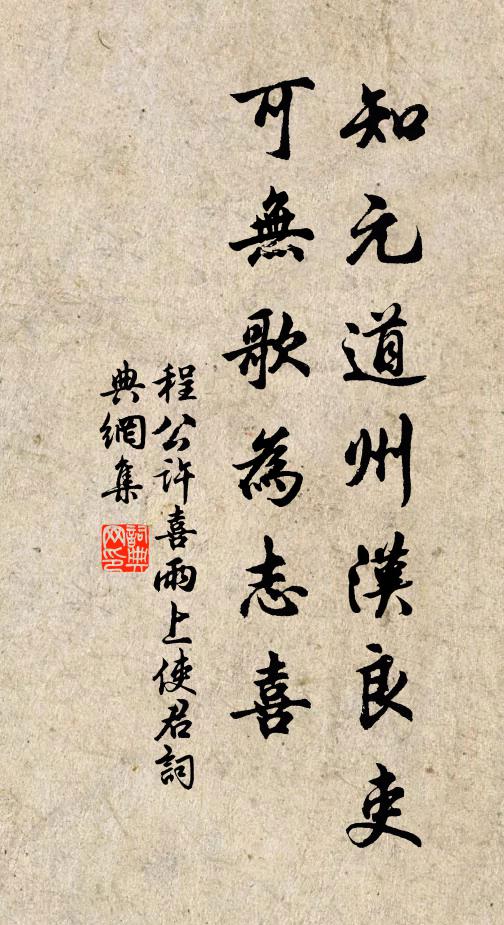 知元道州漢良吏
可無歌為志喜
程公許喜雨上使君詞
典網集
詞典
网印